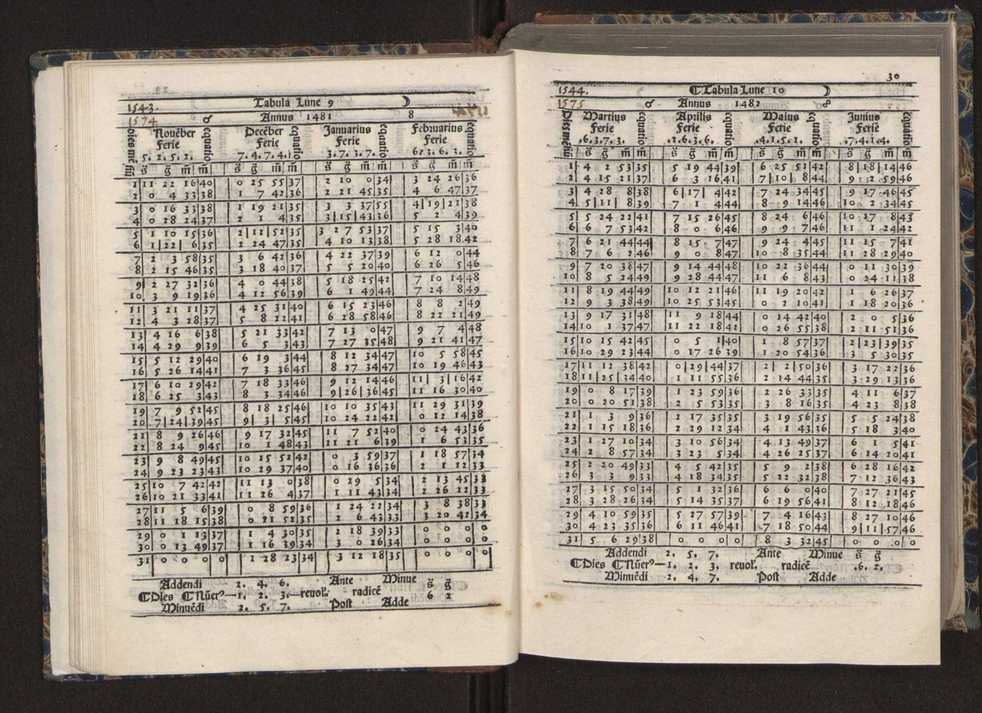 1543.
Tabula Lune 9 ☽
1574
♂ Annus 1481 8
Nouẽber Decẽber Januarius Februarius
ferie ferie ferie ferie
5. 2. 5. 2. 7. 4. 7. 4. 3. 7. 3. 7. 6. 3. 6. 3.
s̃ g̃ m̃ m̃ s̃ g̃ m̃ m̃ s̃ g̃ m̃ m̃ s̃ g̃ m̃ m̃
1 11 22 16 40 0 25 55 37 2 10 0 34 3 24 26 36
2 0 4 33 38 1 7 42 36 2 21 45 35 4 6 47 37
3 0 16 33 38 1 19 21 35 3 3 37 55 4 19 21 38
4 0 28 24 37 2 1 4 35 3 15 43 36 5 2 4 39
5 1 10 15 36 2 12 52 35 3 27 53 37 5 15 3 40
6 1 22 6 35 2 24 47 35 4 10 13 38 5 28 18 42
7 2 3 58 35 3 6 42 36 4 22 37 39 6 12 0 44
8 2 15 46 35 3 18 40 37 5 5 20 40 6 26 5 46
9 2 27 31 36 4 0 44 38 5 18 25 42 7 10 14 48
10 3 9 19 36 4 12 56 39 6 1 49 44 7 24 8 49
11 3 21 11 37 4 25 31 40 6 15 23 46 8 8 2 49
12 4 3 28 37 5 8 22 41 6 28 58 46 8 22 21 49
13 4 16 6 38 5 21 33 42 7 13 0 47 9 7 4 48
14 4 29 9 39 6 5 3 43 7 27 35 48 9 21 41 47
15 5 12 29 40 6 19 3 44 8 12 34 47 10 5 58 45
16 5 26 14 41 7 3 36 45 8 27 34 47 10 19 46 43
17 6 10 29 42 7 18 33 46 9 12 14 46 11 3 16 42
18 6 25 3 43 8 3 34 46 9 26 36 45 11 16 30 40
19 7 9 52 45 8 18 25 46 10 10 35 43 11 29 31 39
20 7 24 39 45 9 3 5 45 10 24 22 42 0 12 14 38
21 8 9 26 46 9 17 32 45 11 7 52 40 0 24 43 36
22 8 24 9 45 10 1 48 43 11 21 6 39 1 6 53 35
23 9 8 49 45 10 15 52 41 0 3 59 37 1 18 57 34
24 9 23 23 43 10 29 37 40 0 16 36 36 2 1 12 33
25 10 7 42 42 11 13 0 38 0 29 5 34 2 13 45 33
26 10 21 33 41 11 26 4 37 1 11 43 34 2 26 22 33
27 11 5 6 39 0 8 59 36 1 24 21 34 3 8 38 33
28 11 18 15 38 0 21 51 35 2 6 43 33 3 20 42 34
29 0 1 13 37 1 4 30 35 2 18 39 33 0 0 0 0
30 0 13 49 37 1 16 39 34 3 0 26 34 0 0 0 0
31 0 0 0 0 1 28 23 34 3 12 18 35 0 0 0 0
Addendi 2. 4. 6. Ante Minue s̃ g̃
Dies Nũer 1. 2. 3. reuol. radicẽ
Minuẽdi 2. 5. 7. Post Adde 6 2
30
1544.
Tabula Lune 10 ☽
1575
♂ Annus 1482
Martius Aprilis Maius Junius
ferie ferie ferie ferie
.6.3.7.3. .2.6.3.6. .4.1.5.1. .7.4.1.4.
s̃ g̃ m̃ m̃ s̃ g̃ m̃ m̃ s̃ g̃ m̃ m̃ s̃ g̃ m̃ m̃
1 4 2 53 35 5 19 44 39 6 25 51 42 8 18 14 46
2 4 15 21 37 6 3 16 41 7 10 8 44 9 2 59 46
3 4 28 8 38 6 17 4 42 7 24 34 45 9 17 46 45
4 5 11 8 39 7 1 4 44 8 9 14 46 10 2 34 45
5 5 24 22 41 7 15 26 45 8 24 6 46 10 17 8 43
6 6 7 53 42 8 0 6 46 9 9 7 46 11 1 24 42
7 6 21 44 44 8 15 7 47 9 24 4 45 11 15 7 41
8 7 6 2 46 9 0 8 47 10 8 35 44 11 28 29 40
9 7 20 38 47 9 14 44 48 10 22 36 44 0 11 30 39
10 8 5 24 49 9 28 44 47 11 6 8 43 0 24 11 38
11 8 19 44 49 10 12 21 46 11 19 20 42 1 6 26 37
12 9 3 38 49 10 25 53 45 0 2 10 41 1 18 20 36
13 9 17 31 48 11 9 18 44 0 14 42 40 2 0 5 36
14 10 1 37 47 11 22 18 42 0 26 55 38 2 11 51 36
15 10 15 42 45 0 5 1 40 1 8 57 37 2 23 39 35
16 10 29 23 44 0 17 26 39 1 20 54 36 3 5 30 35
17 11 12 38 42 0 29 44 37 2 2 50 36 3 17 22 36
18 11 25 34 40 1 11 55 36 2 14 44 35 3 29 13 36
19 0 8 17 39 1 23 59 36 2 26 33 35 4 11 6 37
20 0 20 51 38 2 5 53 35 3 8 16 35 4 23 8 38
21 1 3 9 36 2 17 35 35 3 19 56 35 5 5 24 38
22 1 15 18 36 2 29 12 34 4 1 43 36 5 18 3 40
23 1 27 10 34 3 10 56 34 4 13 49 37 6 1 5 41
24 2 8 57 34 3 23 5 34 4 26 25 37 6 14 20 41
25 2 20 49 33 4 5 42 35 5 9 2 38 6 28 16 42
26 3 3 9 33 4 18 34 35 5 22 32 38 7 12 36 43
27 3 15 50 34 5 1 32 36 6 6 0 40 7 27 21 45
28 3 28 26 34 5 14 35 37 6 19 56 41 8 12 18 46
29 4 10 59 35 5 27 57 39 7 4 16 43 8 27 10 46
30 4 23 35 36 6 11 46 41 7 18 50 44 9 11 57 46
31 5 6 29 38 0 0 0 0 8 3 32 45 0 0 0 0
Addendi 2. 5. 7. Ante Minue s̃ g̃
Dies Nũer 1. 2. 3. reuol. radicẽ .6. 2.
Minuẽdi 2. 4. 7. Post Adde